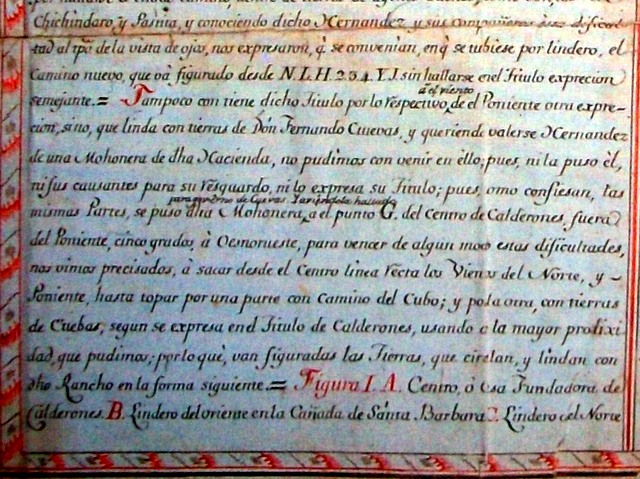 Chichindaro, y Pasnia, y conociendo dicho Hernandez y sus compañeros esta dificul-
tad al tpõ de la vista de ojos, nos expresaron, q̃ se convenian, en q̃ se tubiese por lindero, el
Camino nuevo, que vá figurado desde N. L. H. 2. 3. 4. Y. I sin hallarse en el Titulo exprecion
semejante.= Tampoco con tiene dicho Titulo por lo respectivo, de el Poniente otra expre-
a el viento
cion, sino, que linda con tierras de Dón Fernando Cuevas, y queriende valerse Hernandez
de una Mohonera de dha Hacienda, no pudimos con venir en ello; pues, ni la puso él,
ni sus causantes para su resguardo, ni lo expresa su Titulo; pues, omo confiesan, las
para govierno de Cuevas
mismas Partes, se puso dha Mohonera, a el punto G. del Centro de Calderones, fuera
del Poniente, cinco grados, à Oesnorueste, para vencer de algun moo estas dificultades,
nos vimos precisados, à sacar desde el Centro linea recta los Vienos del Norte, y -
Poniente, hasta topar por una parte con Camino del Cubo; y pola otra, con tierras
de Cuebas, segun se expresa en el Titulo de Calderones, usando e la mayor prolixi
dad, que pudimos; por lo què, van figuradas las Tierras, que cirelan, y lindan con
dho Rancho en la forma siguiente.= Figura I. A. Centro, ò Csa Fundadora de
Calderones. B. Lindero del oriente en la Cañada de Santa Barbara. Lindero del Norte